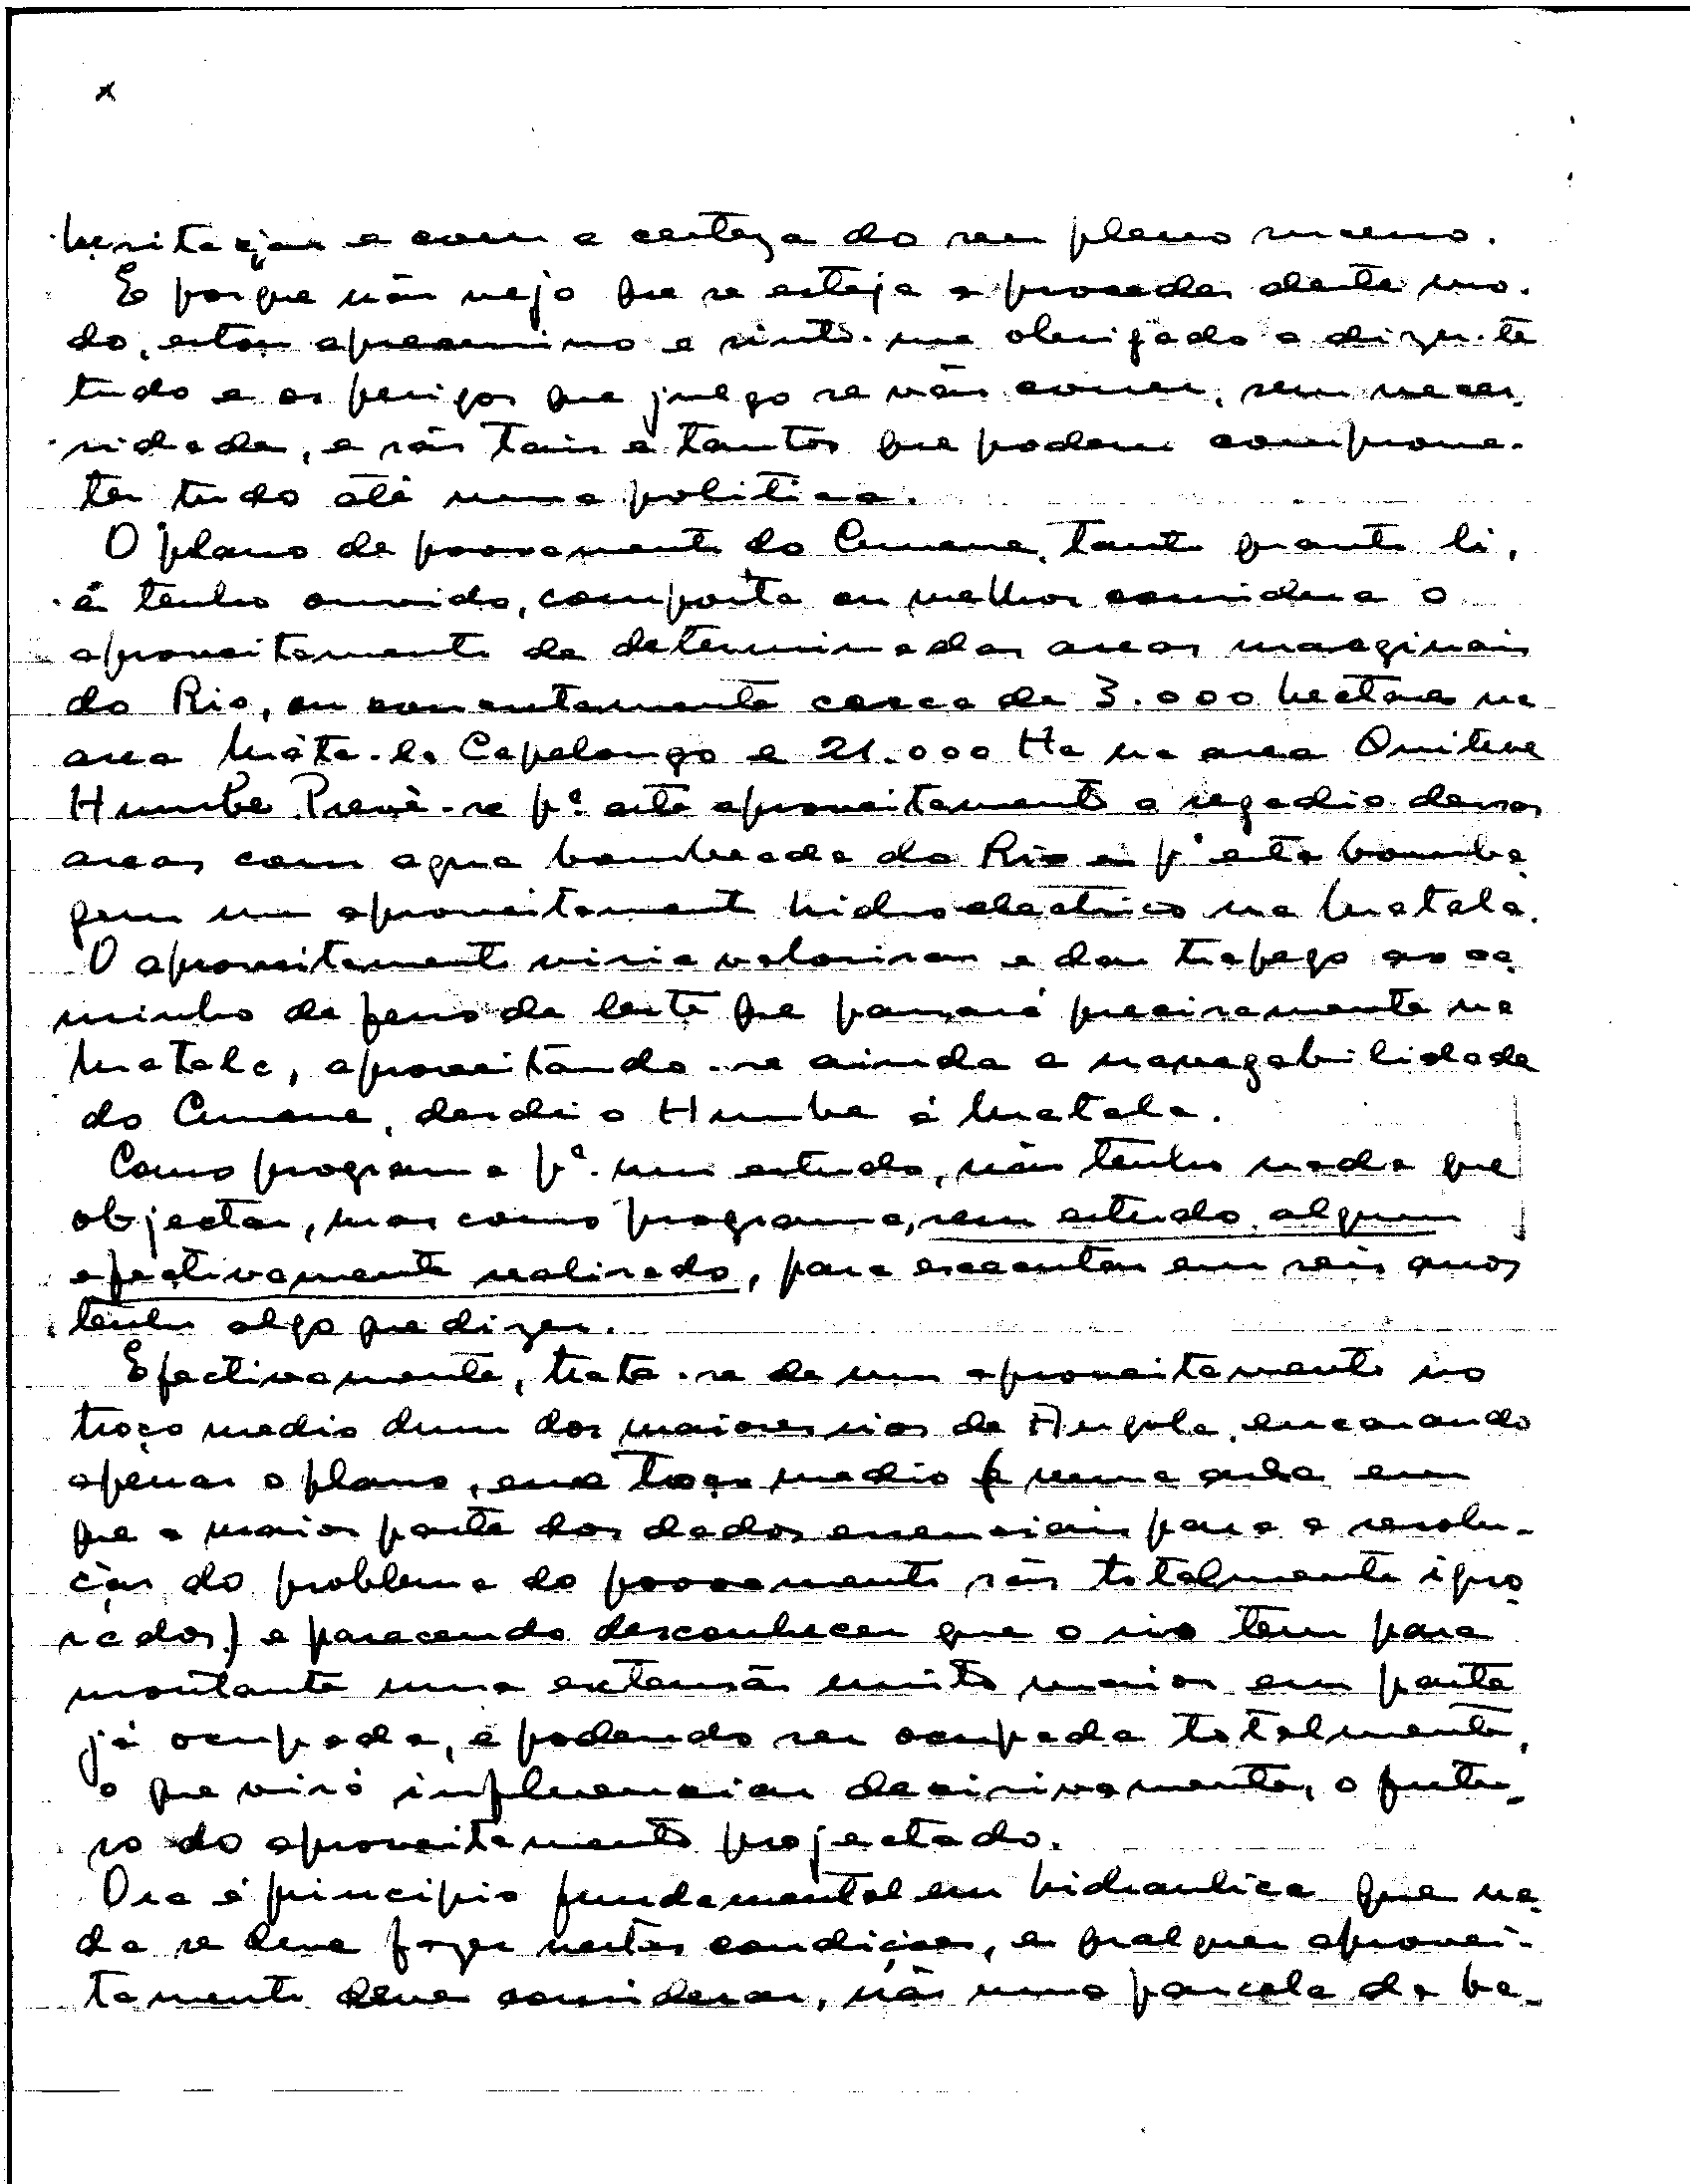 x
hesitação e com a certeza do seu pleno sucesso.
E porque não vejo que se esteja a proceder deste mo-
do, estou apreensivo e sinto-me obrigado a dizer-te
tudo e os perigos que julgo se vão correr, sem neces-
sidade, e são tais e tantos que podem comprome-
ter tudo até uma politica.
O plano de povoamento do Cunene, tanto quanto li,
e tenho ouvido, comporta ou melhor considera o
aproveitamento de determinadas areas marginais
do Rio, ou concretamente cerca de 3.000 hectares na
area Capelongo e 21.000 Ha na area Quiteve
Humbe. Prevê-se pª este aproveitamento o regadio dessas
areas com agua bombeada do Rio e pª esta bomba-
gem um aproveitamento hidroelectrico na Matala.
O aproveitamento viria valorisar e dar trafego ao ca-
minho de ferro de leste que passará precisamente na
Matala, aproveitando-se ainda a navegabilidade
do Cunene, desde o Humbe á Matala.
Como programa pª um estudo, não tenho nada que
objectar, mas como programa, sem estudo algum
efectivamente realisado, para executar em seis anos
tenho algo que dizer.
Efectivamente, trata-se de um aproveitamento no
troço medio dum dos maiores rios de Angola, encarando
apenas o plano, esse troço medio (e numa area em
que a maior parte dos dados essenciais para a resolu-
ção do problema do povoamento são totalmente igno-
rados) e parecendo desconhecer que o rio tem para
montante uma extensão muito maior em parte
já ocupada, e podendo ser ocupada totalmente,
o que virá influenciar decisivamente, o futu-
ro do aproveitamento projectado.
Ora é principio fundamental em hidraulica que na-
da se deve fazer nestas condições, e qualquer aprovei-
tamento deve considerar, não uma parcela da ba-